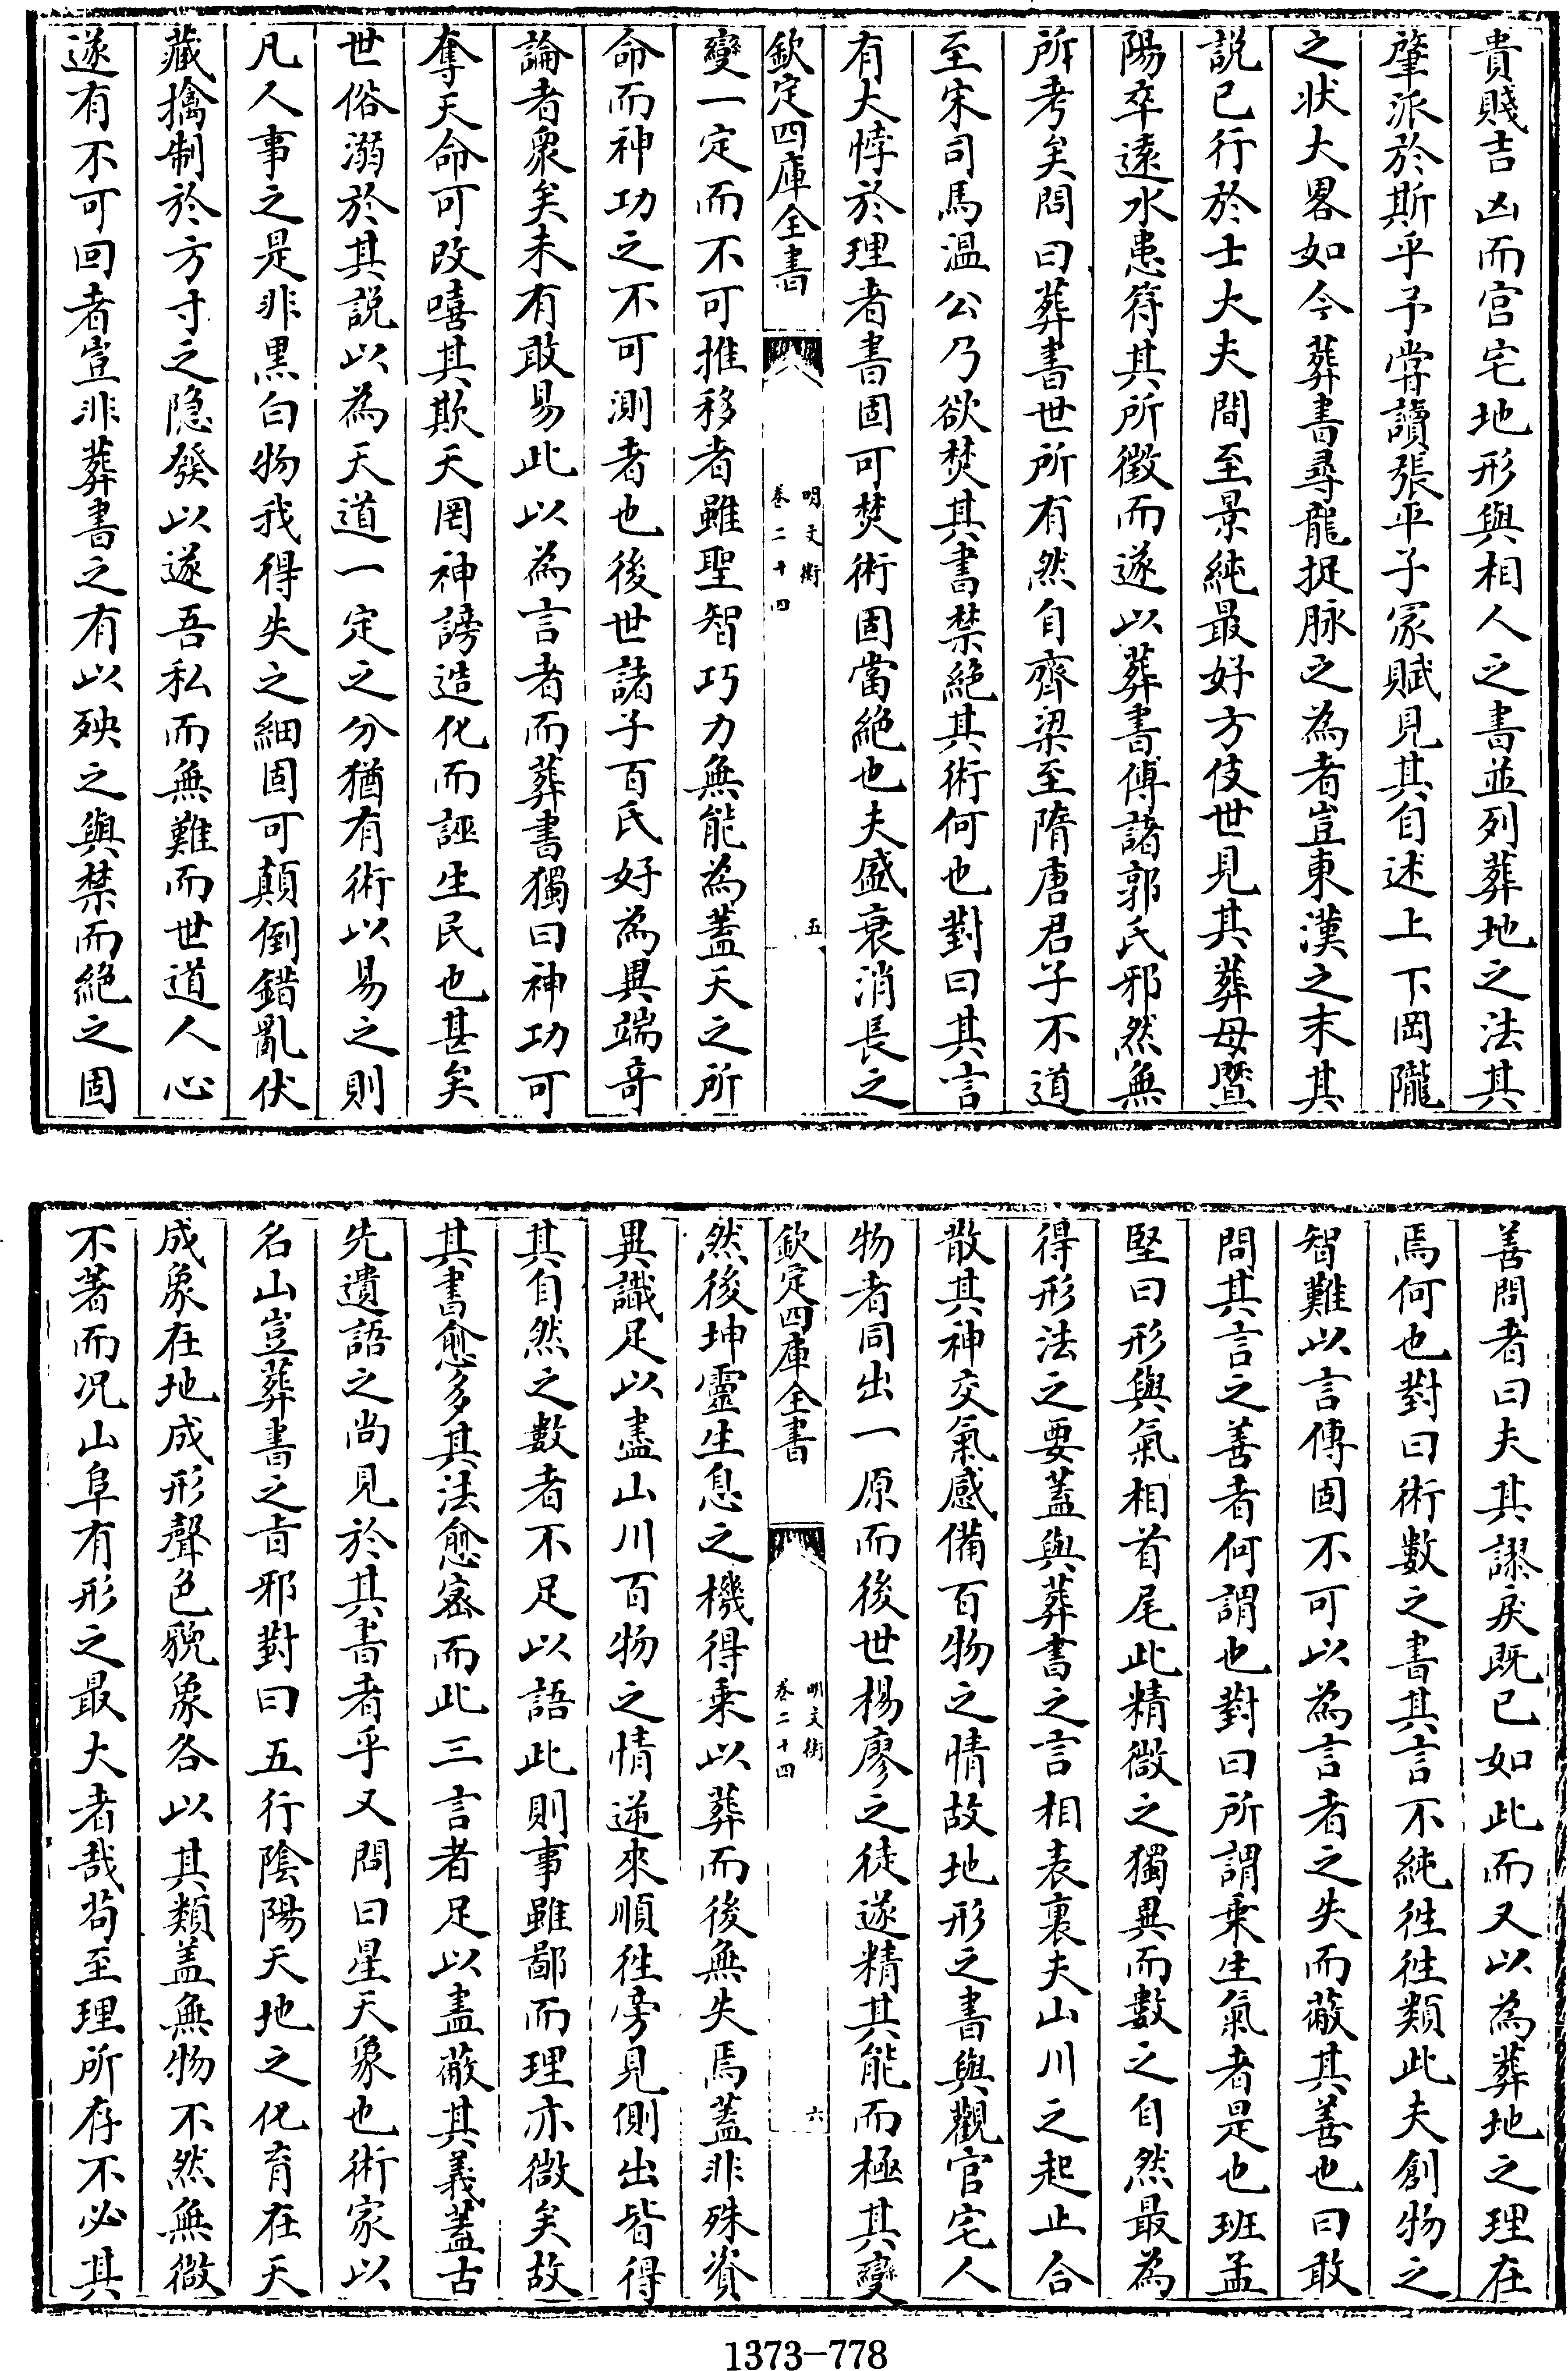 貴賤吉凶而宫宅地形與相人之書並列葬地之法其
肇派於斯乎予嘗讀張平子冢賦見其自述上下岡隴
之状大畧如今葬書尋龍捉脉之為者豈東漢之末其
説已行於士大夫間至景純最好方伎世見其葬母暨
陽卒遠水患符其所徵而遂以葬書傅諸郭氏邪然無
所考矣問曰葬書世所有然自齊梁至隋唐君子不道
至宋司馬温公乃欲焚其書禁絶其術何也對曰其言
有大悖於理者書固可焚術固當絶也夫盛衰消長之
欽定四庫全書
明文衡
卷二十四
五
變一定而不可推移者雖聖智巧力無能為蓋天之所
命而神功之不可測者也後世諸子百氏好為異端竒
論者衆矣未有敢易此以為言者而葬書獨曰神功可
奪天命可改嘻其欺天罔神謗造化而誣生民也甚矣
世俗溺於其説以為天道一定之分猶有術以易之則
凡人事之是非黒白物我得失之細固可顛倒錯亂伏
藏擒制於方寸之隠發以遂吾私而無難而世道人心
遂有不可回者豈非葬書之有以殃之與禁而絶之固
善問者曰夫其謬戾既已如此而又以為葬地之理在
焉何也對曰術數之書其言不純徃徃類此夫創物之
智難以言傳固不可以為言者之失而蔽其善也曰敢
問其言之善者何謂也對曰所謂乗生氣者是也班孟
堅曰形與氣相首尾此精微之獨異而數之自然最為
得形法之要蓋與葬書之言相表裏夫山川之起止合
散其神交氣感備百物之情故地形之書與觀官宅人
物者同出一原而後世楊廖之徒遂精其能而極其變
欽定四庫全書
明文衡
卷二十四
六
然後坤靈生息之機得乗以葬而後無失焉蓋非殊資
異識足以盡山川百物之情逆來順徃旁見側出皆得
其自然之數者不足以語此則事雖鄙而理亦微矣故
其書愈多其法愈宻而此三言者足以盡蔽其義蓋古
先遺語之尚見於其書者乎又問曰星天象也術家以
名山豈葬書之旨邪對曰五行陰陽天地之化育在天
成象在地成形聲色貌象各以其類盖無物不然無微
不著而况山阜有形之最大者哉茍至理所存不必其
1373-778